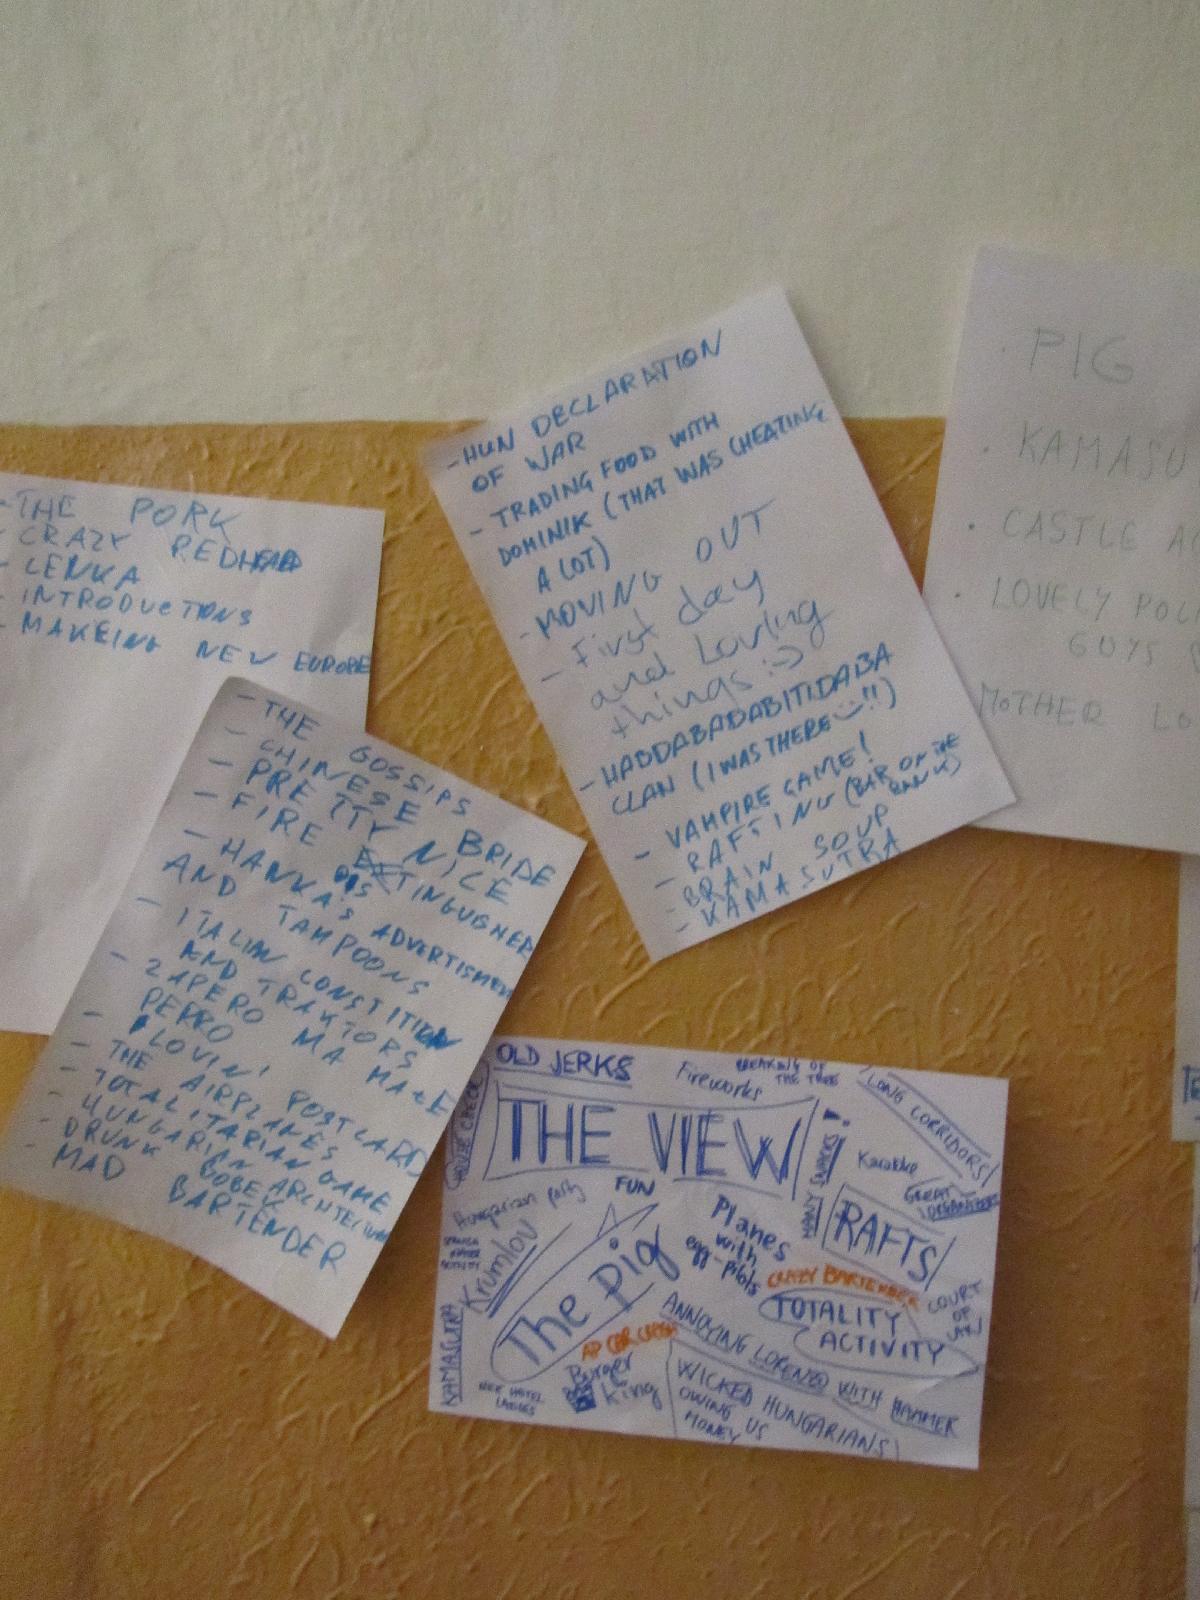 - THE PORK
- CRAZY REDHEAD
- LENKA
- INTRODUCTIONS
- MAKEING NEW EUROPE
- THE GOSSIPS
- CHINESE BRIDE
- PRETTY NICE
- FIRE EXTINGUISHER
- HANKA'S ADVERTISMENT
AND TAMPOONS
- ITALIAN CONSTITION
AND TRAKTORS
- ZAPERO MA
PERRO
- LOVIN' POSTCARD
- THE AIRPLANES
- TOTALITARIAN GAME
- HUNGARIAN ARCHITECTURE
- DRUNK
- MAD BARTENDER
- HUN DECLARATION
OF WAR
- TRADING FOOD WITH
DOMINIK (THAT WAS CHEATING
A LOT)
- MOVING OUT
- First day
and Loving
things :-)
- HABDABADABITIDABA
CLAN (I WAS THERE !!)
- VAMPIRE GAME!
- RAFTING (BAR ON THE
BANK)
- BRAIN SOUP
- KAMASUTRA
· PIG
· KAMASU
· CASTLE
· LOVELY
GUYS
MOTHER LO
OLD JERKS
Fireworks
BREAKING OF
THE TREE
LONG CORRIDORS!
THE VIEW
MANY SNACKS!
Karaoke
GREAT
ORGANISERS
HOUSE CHECK
Hungarian party
FUN
Planes
with
egg-pilots
RAFTS!
Krumlov
The Pig
CRAZY BARTENDER
TOTALITY
ACTIVITY
COURT
OF
ANNOYING LORENZO WITH HAMMER
KAMASUTRA
Burger
King
WICKED HUNGARIANS
OWING US
MONEY